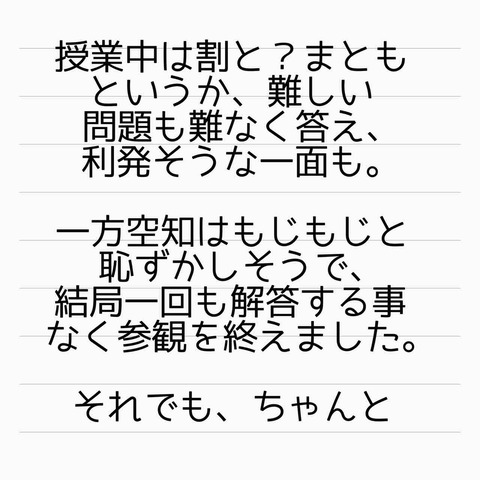 授業中は割と？まとも
というか、難しい
問題も難なく答え、
利発そうな一面も。
一方空知はもじもじと
恥ずかしそうで、
結局一回も解答する事
なく参観を終えました。
それでも、ちゃんと